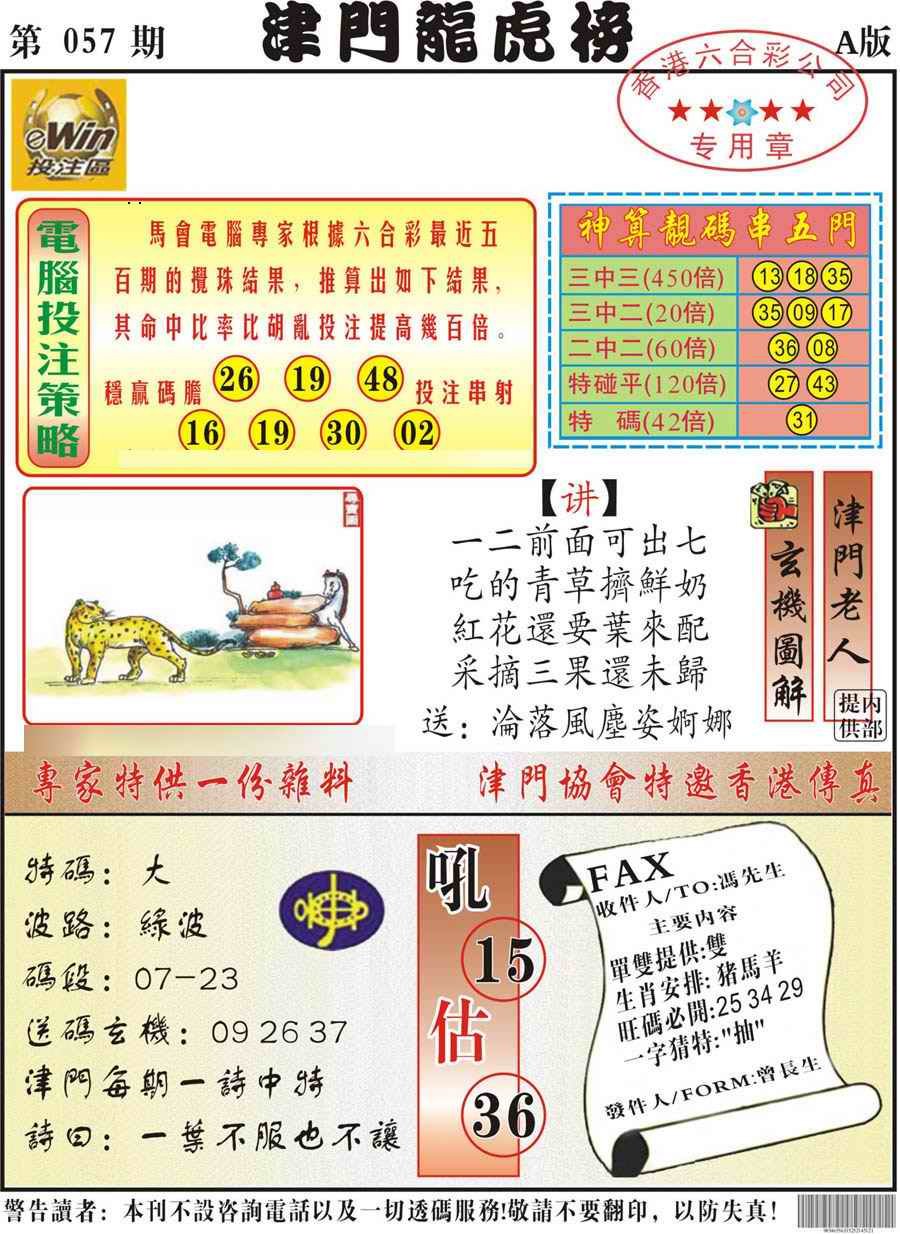 第 057 期
津門龍虎榜
A版
香港六合彩公司
专用章
eWin
投注區
電腦投注策略
馬會電腦專家根據六合彩最近五
百期的攪珠結果，推算出如下結果，
其命中比率比胡亂投注提高幾百倍。
穩贏碼膽 26 19 48 投注串射
16 19 30 02
神算靚碼串五門
三中三(450倍) 13 18 35
三中二(20倍) 35 09 17
二中二(60倍) 36 08
特碰平(120倍) 27 43
特 碼(42倍) 31
【讲】
一二前面可出七
吃的青草擠鮮奶
紅花還要葉來配
采摘三果還未歸
送：淪落風塵姿婀娜
玄機圖解
津門老人
内部提供
專家特供一份雜料
津門協會特邀香港傳真
特碼：大
波路：綠波
碼段：07-23
送碼玄機：09 26 37
津門每期一詩中特
詩曰：一葉不服也不讓
吼
15
估
36
FAX
收件人/TO:馮先生
主要内容
單雙提供:雙
生肖安排:豬馬羊
旺碼必開:25 34 29
一字猜特:"抽"
發件人/FORM:曾長生
警告讀者：本刊不設咨詢電話以及一切透碼服務!敬請不要翻印，以防失真!